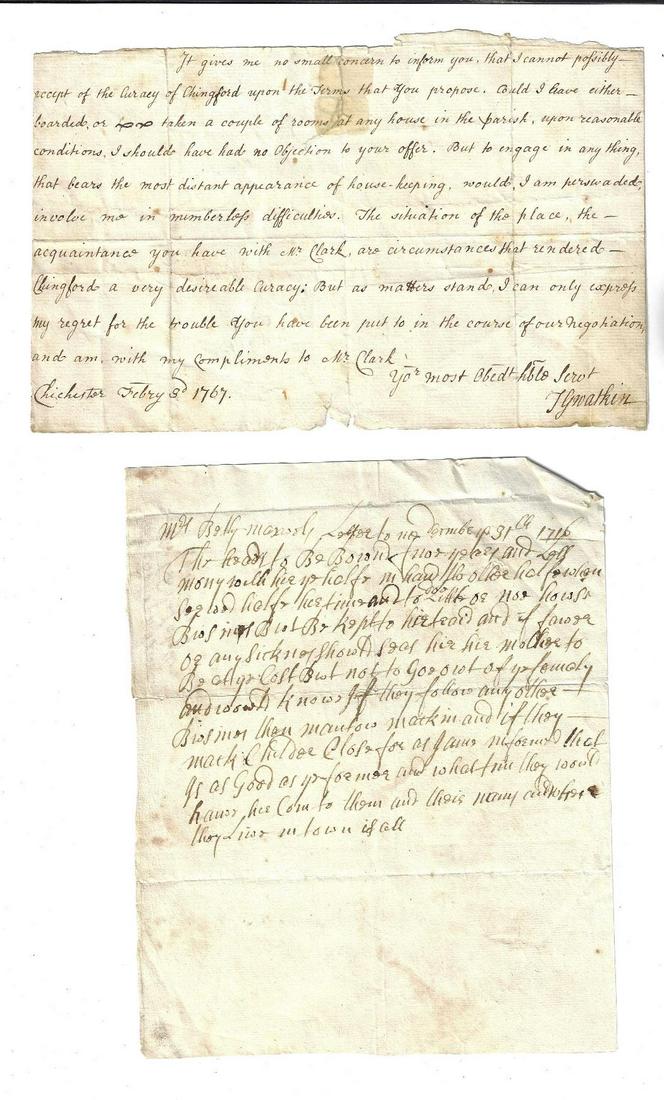 It gives me no small concern to inform you, that I cannot possibly
accept of the Curacy of Chingford upon the Terms that You propose. Could I have either
boarded, or taken a couple of rooms at any house in the parish, upon reasonable
conditions, I should have had no Objection to your offer. But to engage in any thing,
that bears the most distant appearance of house-keeping, would, I am perswaded,
involve me in numberless difficulties. The situation of the place, the
acquaintance you have with Mr. Clark, are circumstances that rendered
Chingford a very desireable Curacy: But as matters stand, I can only express
my regret for the trouble You have been put to in the course of our negotiation,
and am, with my Compliments to Mr. Clark,
Yor. most Obedt. hble Servt
Chichester Febry 3d 1767.
Gwatkin
Mrs Betty Letter to me ye 31th 1716
The heads to Be Bound yeares and Less
mony with her ye halfe in hand ye other halfe when
halfe her time and to Littel or noe howse
Bwsines Bwt Be kept to her and if
or any Sickness showld seas her her mother to
Be at ye Cost Bwt not to Goe owt of ye femely
and wowld knowe If they follow any other
Bwsines then mantow mackin and if they
mack Childer Close for as I am informed that
Is as Good as ye former and what time they would
have her Com to them and their name and where
they Live in town is all